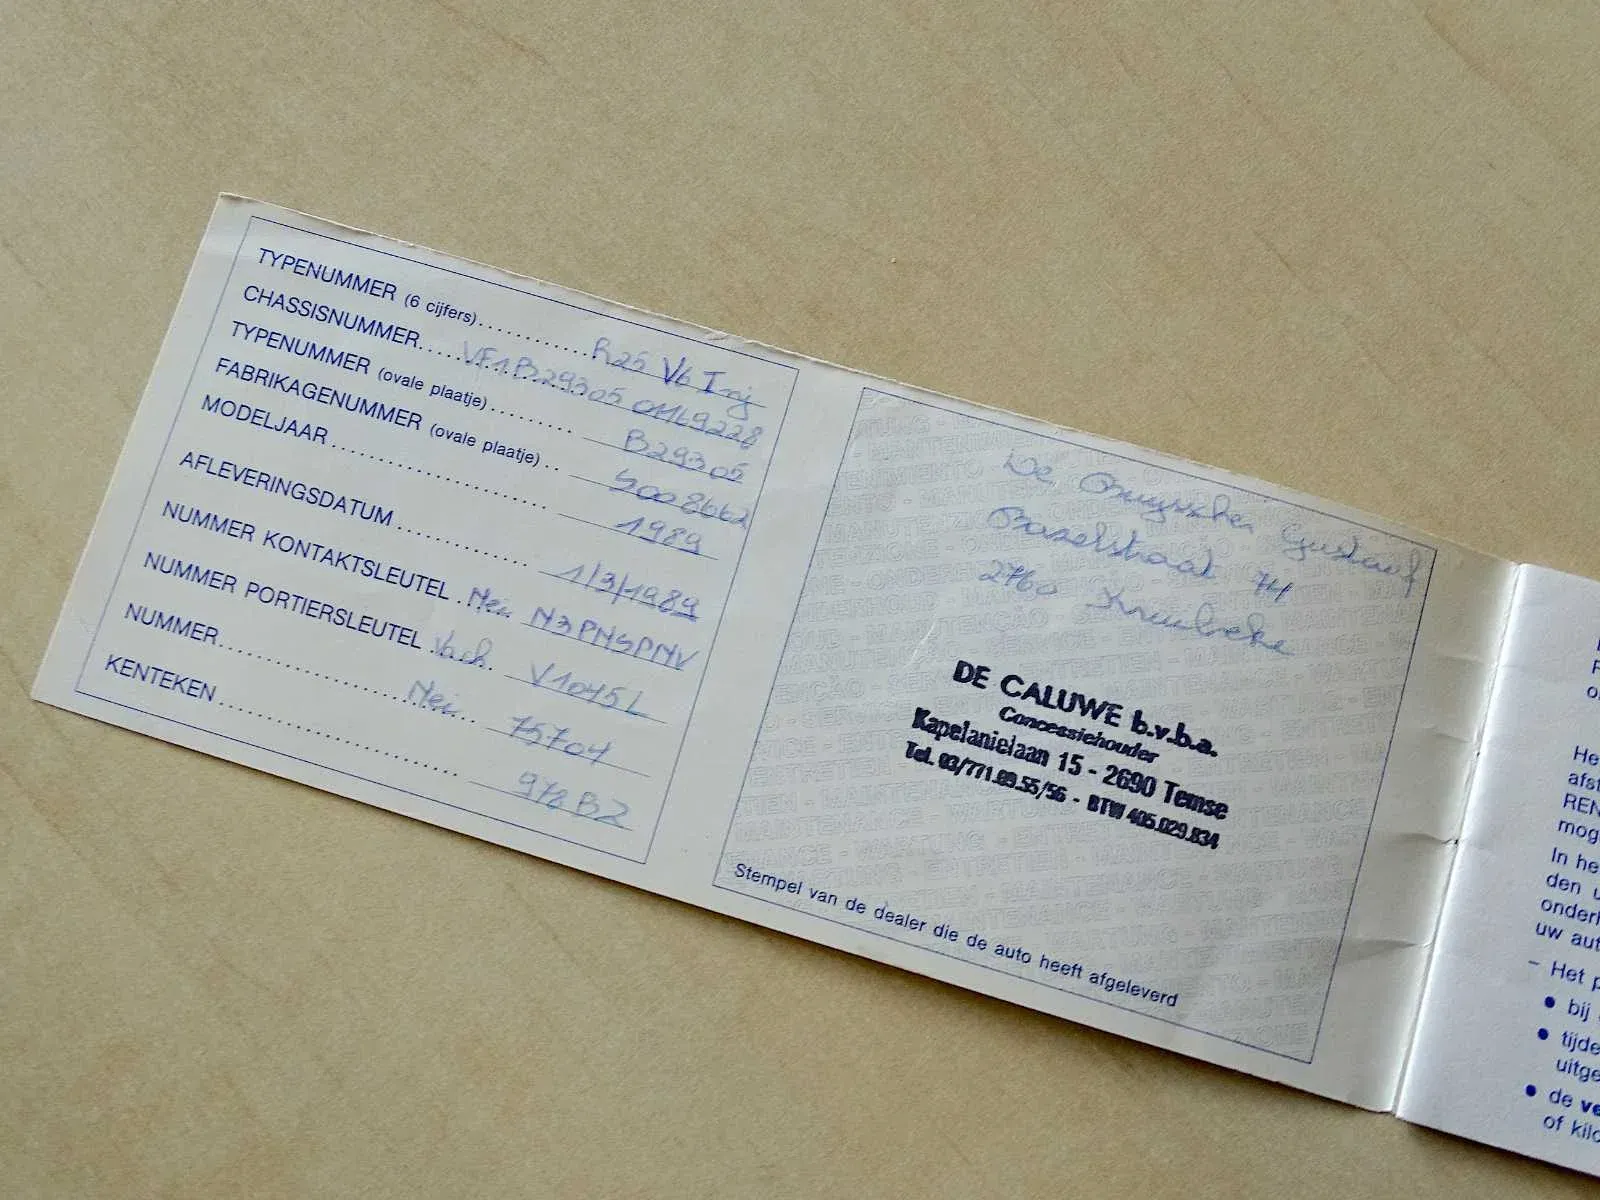 TYPENUMMER (6 cijfers)........... R25 V6 Inj
CHASSISNUMMER.... VF1B29305 01169228
TYPENUMMER (ovale plaatje)......... B29305
FABRIKAGENUMMER (ovale plaatje).. S008662
MODELJAAR ................ 1989
AFLEVERINGSDATUM ............ 1/3/1989
NUMMER KONTAKTSLEUTEL . Nei N3PNSPNV
NUMMER PORTIERSLEUTEL Vach V1045L
NUMMER............... Nei 75704
KENTEKEN .................. 978B2
De Gustaaf
Bazelstraat 74
2760 Kruibeke
DE CALUWE b.v.b.a.
Concessiehouder
Kapelanielaan 15 - 2690 Temse
Tel. 03/771.09.55/56 - BTW 405.029.834
Stempel van de dealer die de auto heeft afgeleverd
He
afst
REN
mog
In he
den u
onder
uw aut
– Het p
• bij
• tijde
uitge
• de ve
of kilo